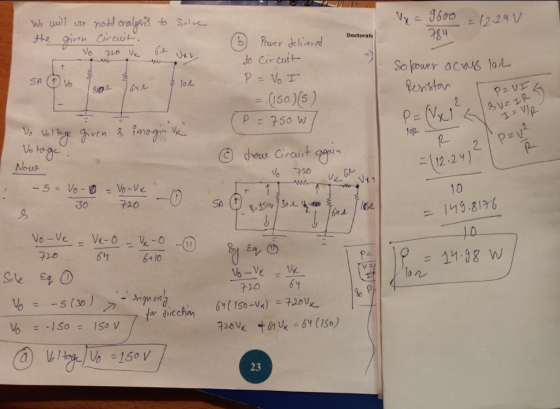 We will use nodal analysis to solve
the given circuit.
V₀ 720 Vₓ 6Ω
5A V₀ 30Ω 64Ω 10Ω
+
-
V₀ voltage given & imagin 'Vₓ'
Voltage.
Now
-5 = V₀-0/30 = V₀-Vₓ/720 — (I)
&
V₀-Vₓ/720 = Vₓ-0/64 = Vₓ-0/6+10 — (II)
Solve Eq (I)
V₀ = -5(30) '-' sign only
for direction
V₀ = -150 = 150V
(a) Voltage V₀ = 150V
(b) Power delivered
to circuit
P = V₀ I
= (150)(5)
P = 750 W
(c) draw circuit again
V₀ 720 Vₓ 6Ω
5A 150V 30Ω 64Ω 10Ω
By Eq (II)
V₀-Vₓ/720 = Vₓ/64
64(150-Vₓ) = 720Vₓ
720Vₓ + 64Vₓ = 64(150)
23
Doctorals
P=
V=
I=
so P=
Vₓ = 9600/784 = 12.24V
So power across 10Ω
Resistor
P10Ω = (Vₓ)²/R
= (12.24)²/10
= 149.8176/10
P10Ω = 14.98 W
P = VI
& V = IR
I = V/R
P = V²/R